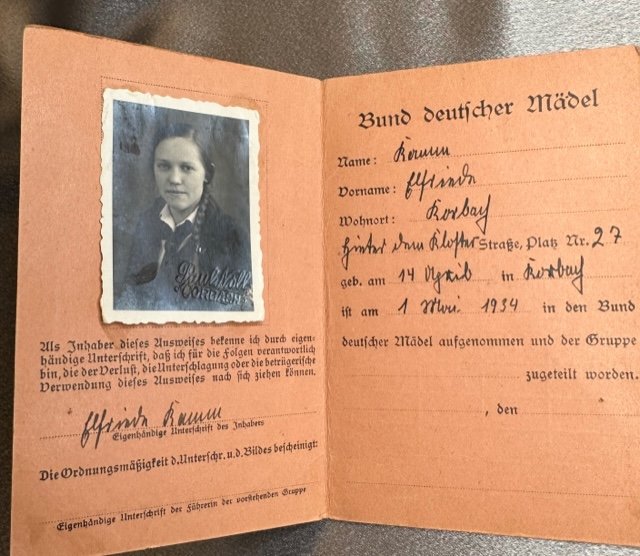 Paul Völl
CORBACH
Als Inhaber dieses Ausweises bekenne ich durch eigen-
händige Unterschrift, daß ich für die Folgen verantwortlich
bin, die der Verlust, die Unterschlagung oder die betrügerische
Verwendung dieses Ausweises nach sich ziehen können.
Elfriede Kamm
Eigenhändige Unterschrift des Inhabers
Die Ordnungsmäßigkeit d. Unterschr. u. d. Bildes bescheinigt:
Eigenhändige Unterschrift der Führerin der vorstehenden Gruppe
Bund deutscher Mädel
Name: Kamm
Vorname: Elfriede
Wohnort: Korbach
Hinter dem Kloster Straße, Platz Nr. 27
geb. am 14 April in Korbach
ist am 1 Mai 1934 in den Bund
deutscher Mädel aufgenommen und der Gruppe
zugeteilt worden.
, den